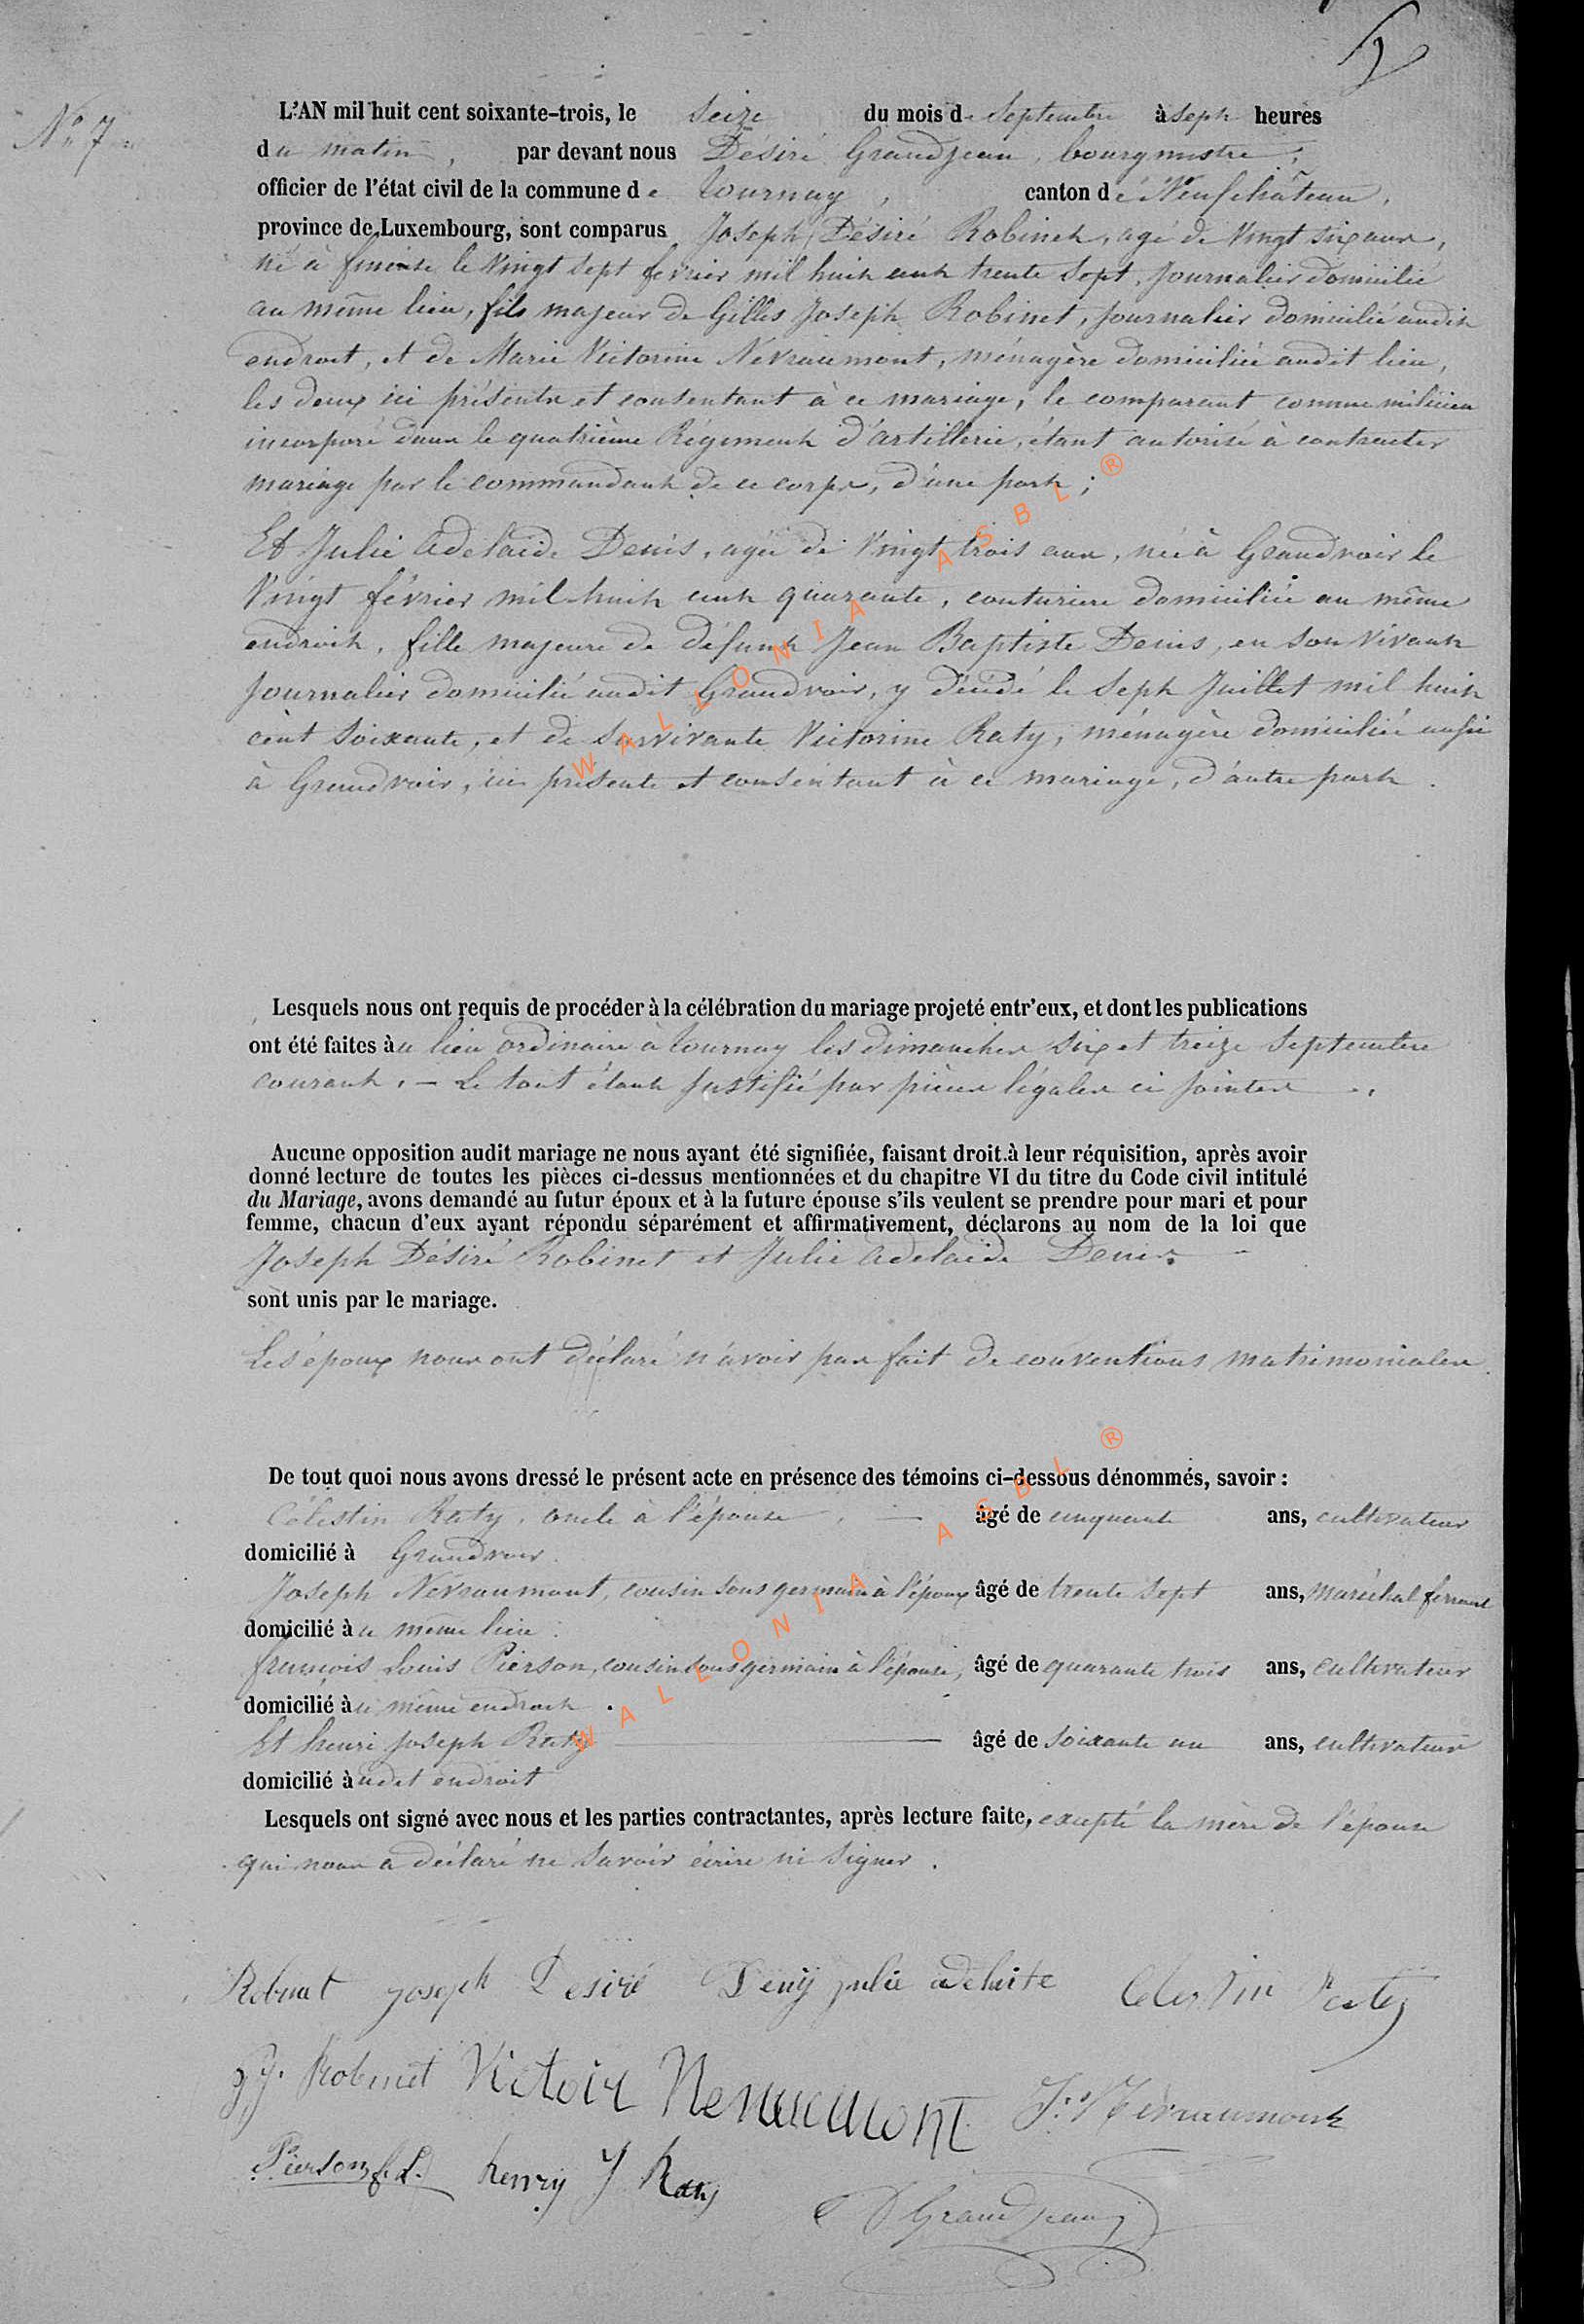 N° 7
L'AN mil huit cent soixante-trois, le seize du mois de Septembre à Sept heures
du matin, par devant nous Désiré Grandjean, bourgmestre,
officier de l'état civil de la commune de Tournay, canton de Neufchâteau,
province de Luxembourg, sont comparus Joseph Désiré Robinet, agé de vingt six ans,
né à le vingt sept février mil huit cent trente sept, Journalier domicilié
au même lieu, fils majeur de Gilles Joseph Robinet, Journalier domicilié audit
endroit, et de Marie Victorine Névraumont, ménagère domiciliée audit lieu,
les deux ici présents et consentant à ce mariage, le comparant comme milicien
incorporé dans le quatrième Régiment d'artillerie, étant autorisé à contracter
mariage par le commandant de ce corps, d'une part;
Et Julie Adelaïde Denis, agée de Vingt trois ans, née à Grandvoir le
Vingt février mil huit cent quarante, couturière domiciliée au même
endroit, fille majeure de défunt Jean Baptiste Denis, en son vivant
Journalier domicilié audit Grandvoir, y décédé le Sept Juillet mil huit
cent soixante, et de survivante Victorine Raty, ménagère domiciliée aussi
à Grandvoir, ici présente et consentant à ce mariage, d'autre part.
Lesquels nous ont requis de procéder à la célébration du mariage projeté entr'eux, et dont les publications
ont été faites au lieu ordinaire à Tournay les dimanches six et treize Septembre
courant. — Le tout étant Justifié par pièces légales ci jointes
Aucune opposition audit mariage ne nous ayant été signifiée, faisant droit à leur réquisition, après avoir
donné lecture de toutes les pièces ci-dessus mentionnées et du chapitre VI du titre du Code civil intitulé
du Mariage, avons demandé au futur époux et à la future épouse s'ils veulent se prendre pour mari et pour
femme, chacun d'eux ayant répondu séparément et affirmativement, déclarons au nom de la loi que
Joseph Désiré Robinet et Julie Adelaïde Denis
sont unis par le mariage.
Les époux nous ont déclaré n'avoir pas fait de conventions matrimoniales.
De tout quoi nous avons dressé le présent acte en présence des témoins ci-dessous dénommés, savoir :
Célestin Raty, oncle à l'épouse, âgé de cinquante ans, cultivateur
domicilié à Grandvoir.
Joseph Névraumont, cousin sous germain à l'époux âgé de trente sept ans, maréchal ferrant
domicilié au même lieu.
François Louis Pierson, cousin sous germain à l'épouse, âgé de quarante trois ans, cultivateur
domicilié au même endroit.
Et henri Joseph Raty — âgé de soixante un ans, cultivateur
domicilié audit endroit
Lesquels ont signé avec nous et les parties contractantes, après lecture faite, excepté la mère de l'épouse
qui nous a déclaré ne savoir écrire ni signer.
Robinet joseph Desiré Denis julie adelaite Celestin Raty
g J. Robinet Victoir Nevraumont J. Névraumont
Pierson f. L. henry J Raty
D Grandjean
WALLONIA ASBL ®
WALLONIA ASBL ®